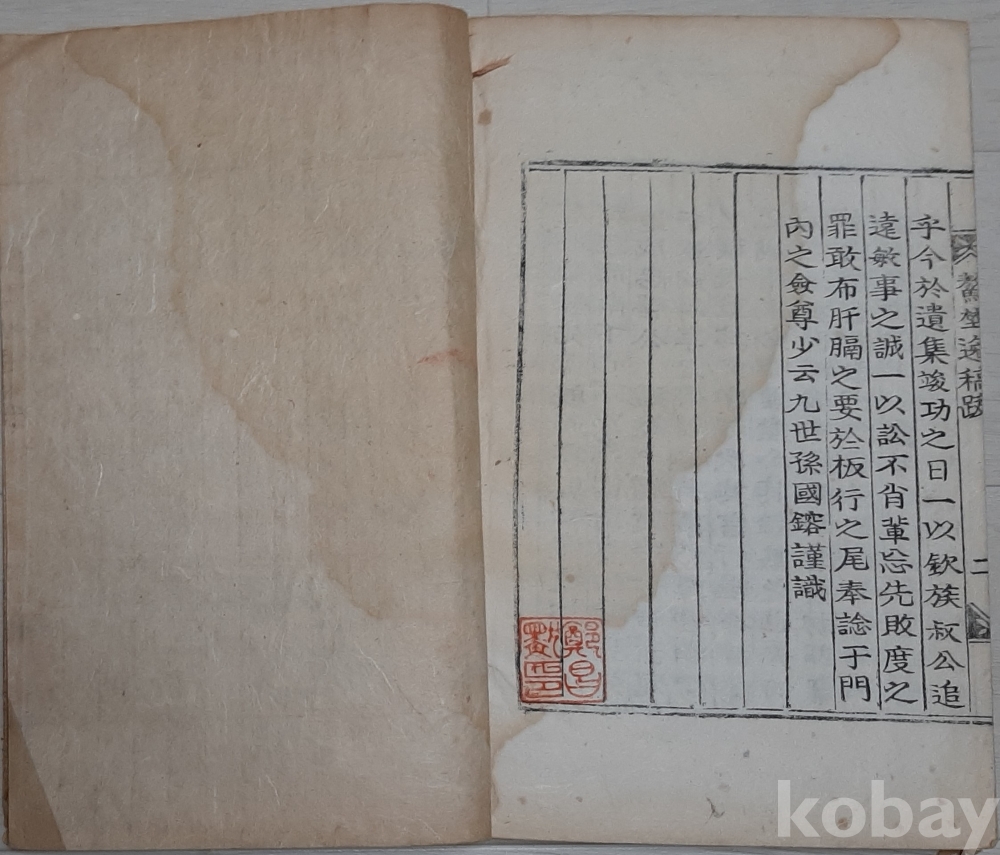 鰲峯逸稿跋
二
乎今於遺集竣功之日一以欽族叔公追
遠敏事之誠一以訟不肖輩忘先敗度之
罪敢布肝膈之要於板行之尾奉諗于門
內之僉尊少云九世孫國鎔謹識
kobay